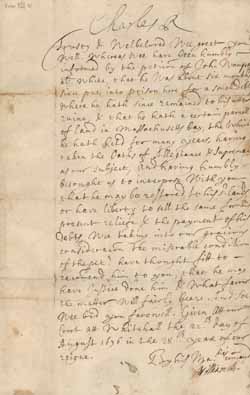 Charles R
Trusty & Welbeloved Wee greet you
Well. Whereas wee have been humbly
informed by the petition of John Wampas
als White, that he was about six months
since put into prison here for a small debt
where he hath since remained to his utter
ruine, & that he hath a certain parcel
of land in Massachusets bay, the which
he hath held for many years, having
taken the Oaths of Allegiance & Supremacy
as our subject, And having humbly
besought us to interpose with you
that he may be restored to his lands
or have liberty to sell the same for his
present reliefe, & the payment of his
debts. Wee taking into our gracious
consideration the miserable condition
of the petr. have thought fitt to
recommend him to you, that he may
have Justice done him & what favor
the matter will fairly beare, and so
Wee bid you farewell. Given at our
Court at Whitehall the 22th day of
August 1676 in the 28th year of our
reigne.
By his Maties command
Williamson